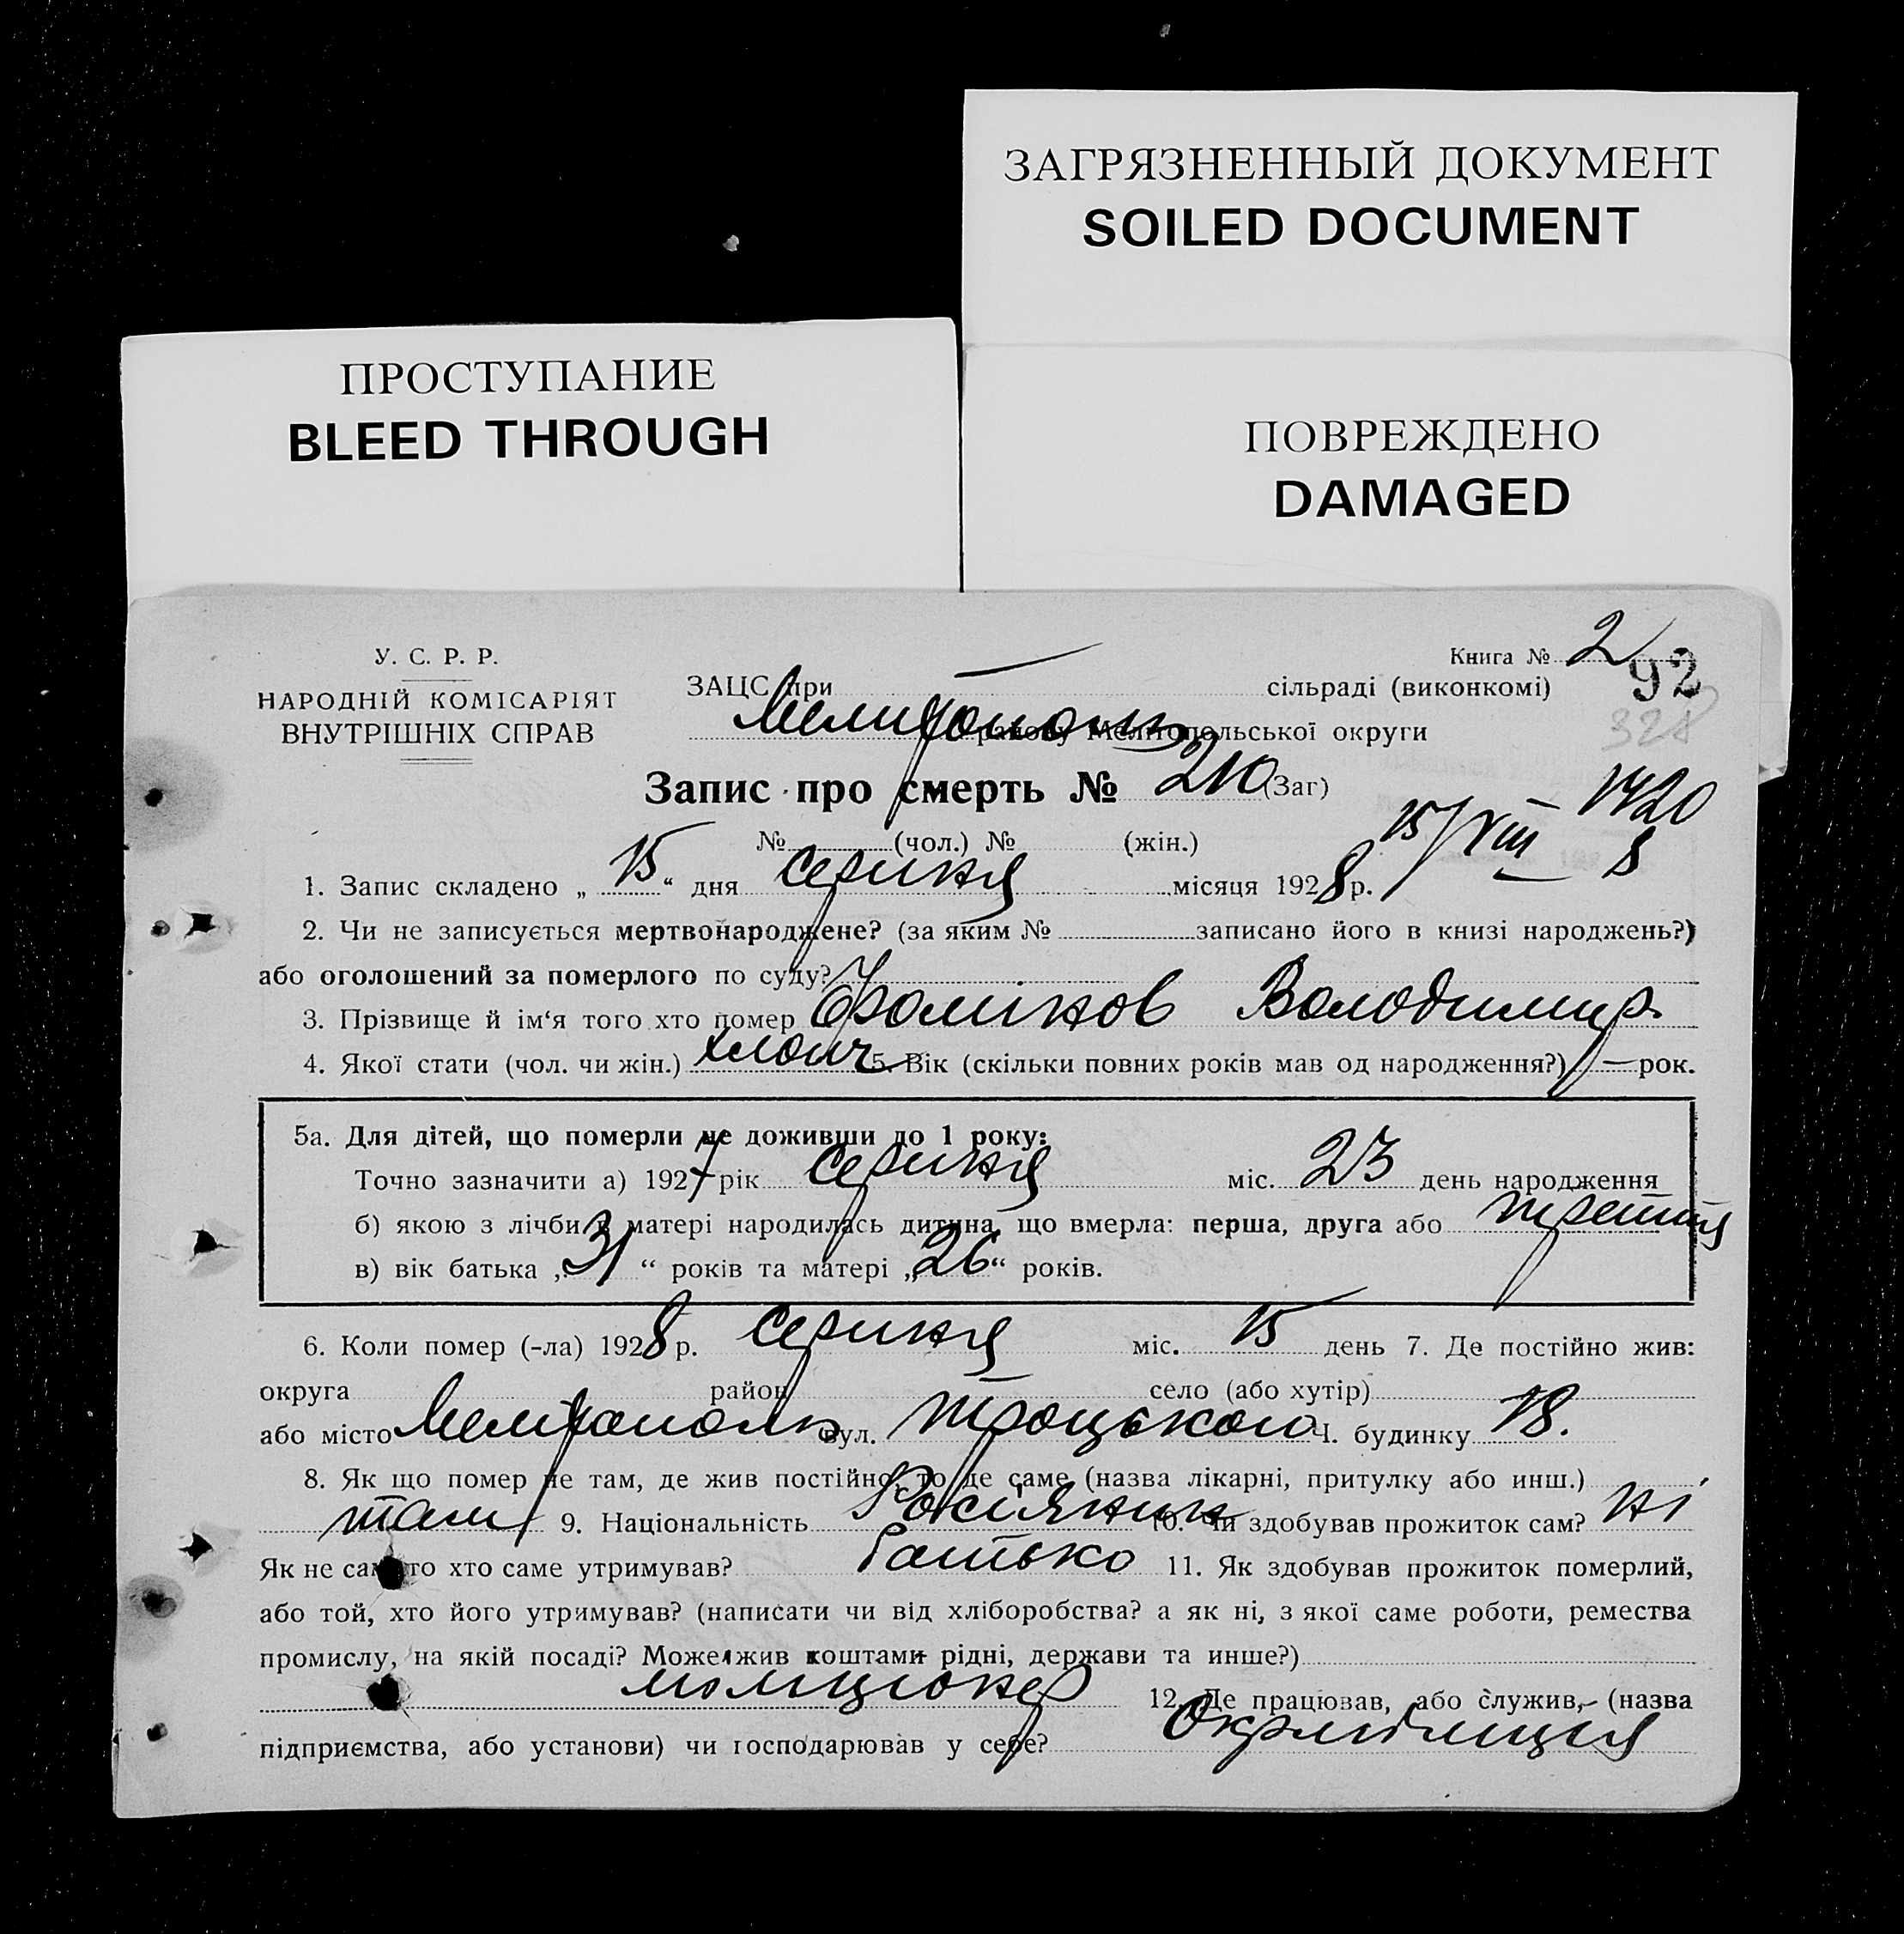 ЗАГРЯЗНЕННЫЙ ДОКУМЕНТ
SOILED DOCUMENT
ПРОСТУПАНИЕ
BLEED THROUGH
ПОВРЕЖДЕНО
DAMAGED
У. С. Р. Р.
НАРОДНІЙ КОМІСАРІЯТ
ВНУТРІШНІХ СПРАВ
Книга № 2
92
328
ЗАЦС при — сільраді (виконкомі)
Мелитополь району Мелітопольської округи
Запис про смерть № 210 (Заг)
1420
15/VIII 8
№ (чол.) № (жін.)
1. Запис складено „ 15 “ дня серпня місяця 1928 р.
2. Чи не записується мертвонароджене? (за яким № записано його в книзі народжень?)
або оголошений за померлого по суду?
3. Прізвище й ім‘я того хто помер Фролінков Володимир
4. Якої стати (чол. чи жін.) хлопч 5. Вік (скільки повних років мав од народження?) — рок.
5а. Для дітей, що померли не доживши до 1 року:
Точно зазначити а) 1927 рік серпня міс. 23 день народження
б) якою з лічби в матері народилась дитина, що вмерла: перша, друга або третя
в) вік батька „ 31 “ років та матері „ 26 “ років.
6. Коли помер (-ла) 1928 р. серпня міс. 15 день 7. Де постійно жив:
округа район — село (або хутір)
або місто Мелітополь вул. Троцького Ч. будинку 18.
8. Як що помер не там, де жив постійно, то де саме (назва лікарні, притулку або инш.)
там 9. Національність Росіянин 10. Чи здобував прожиток сам? ні
Як не сам то хто саме утримував? батько 11. Як здобував прожиток померлий,
або той, хто його утримував? (написати чи від хліборобства? а як ні, з якої саме роботи, ремества
промислу, на якій посаді? Може жив коштами рідні, держави та инше?)
міліціонер 12. Де працював, або служив, (назва
підприємства, або установи) чи господарював у себе? Окрміліція